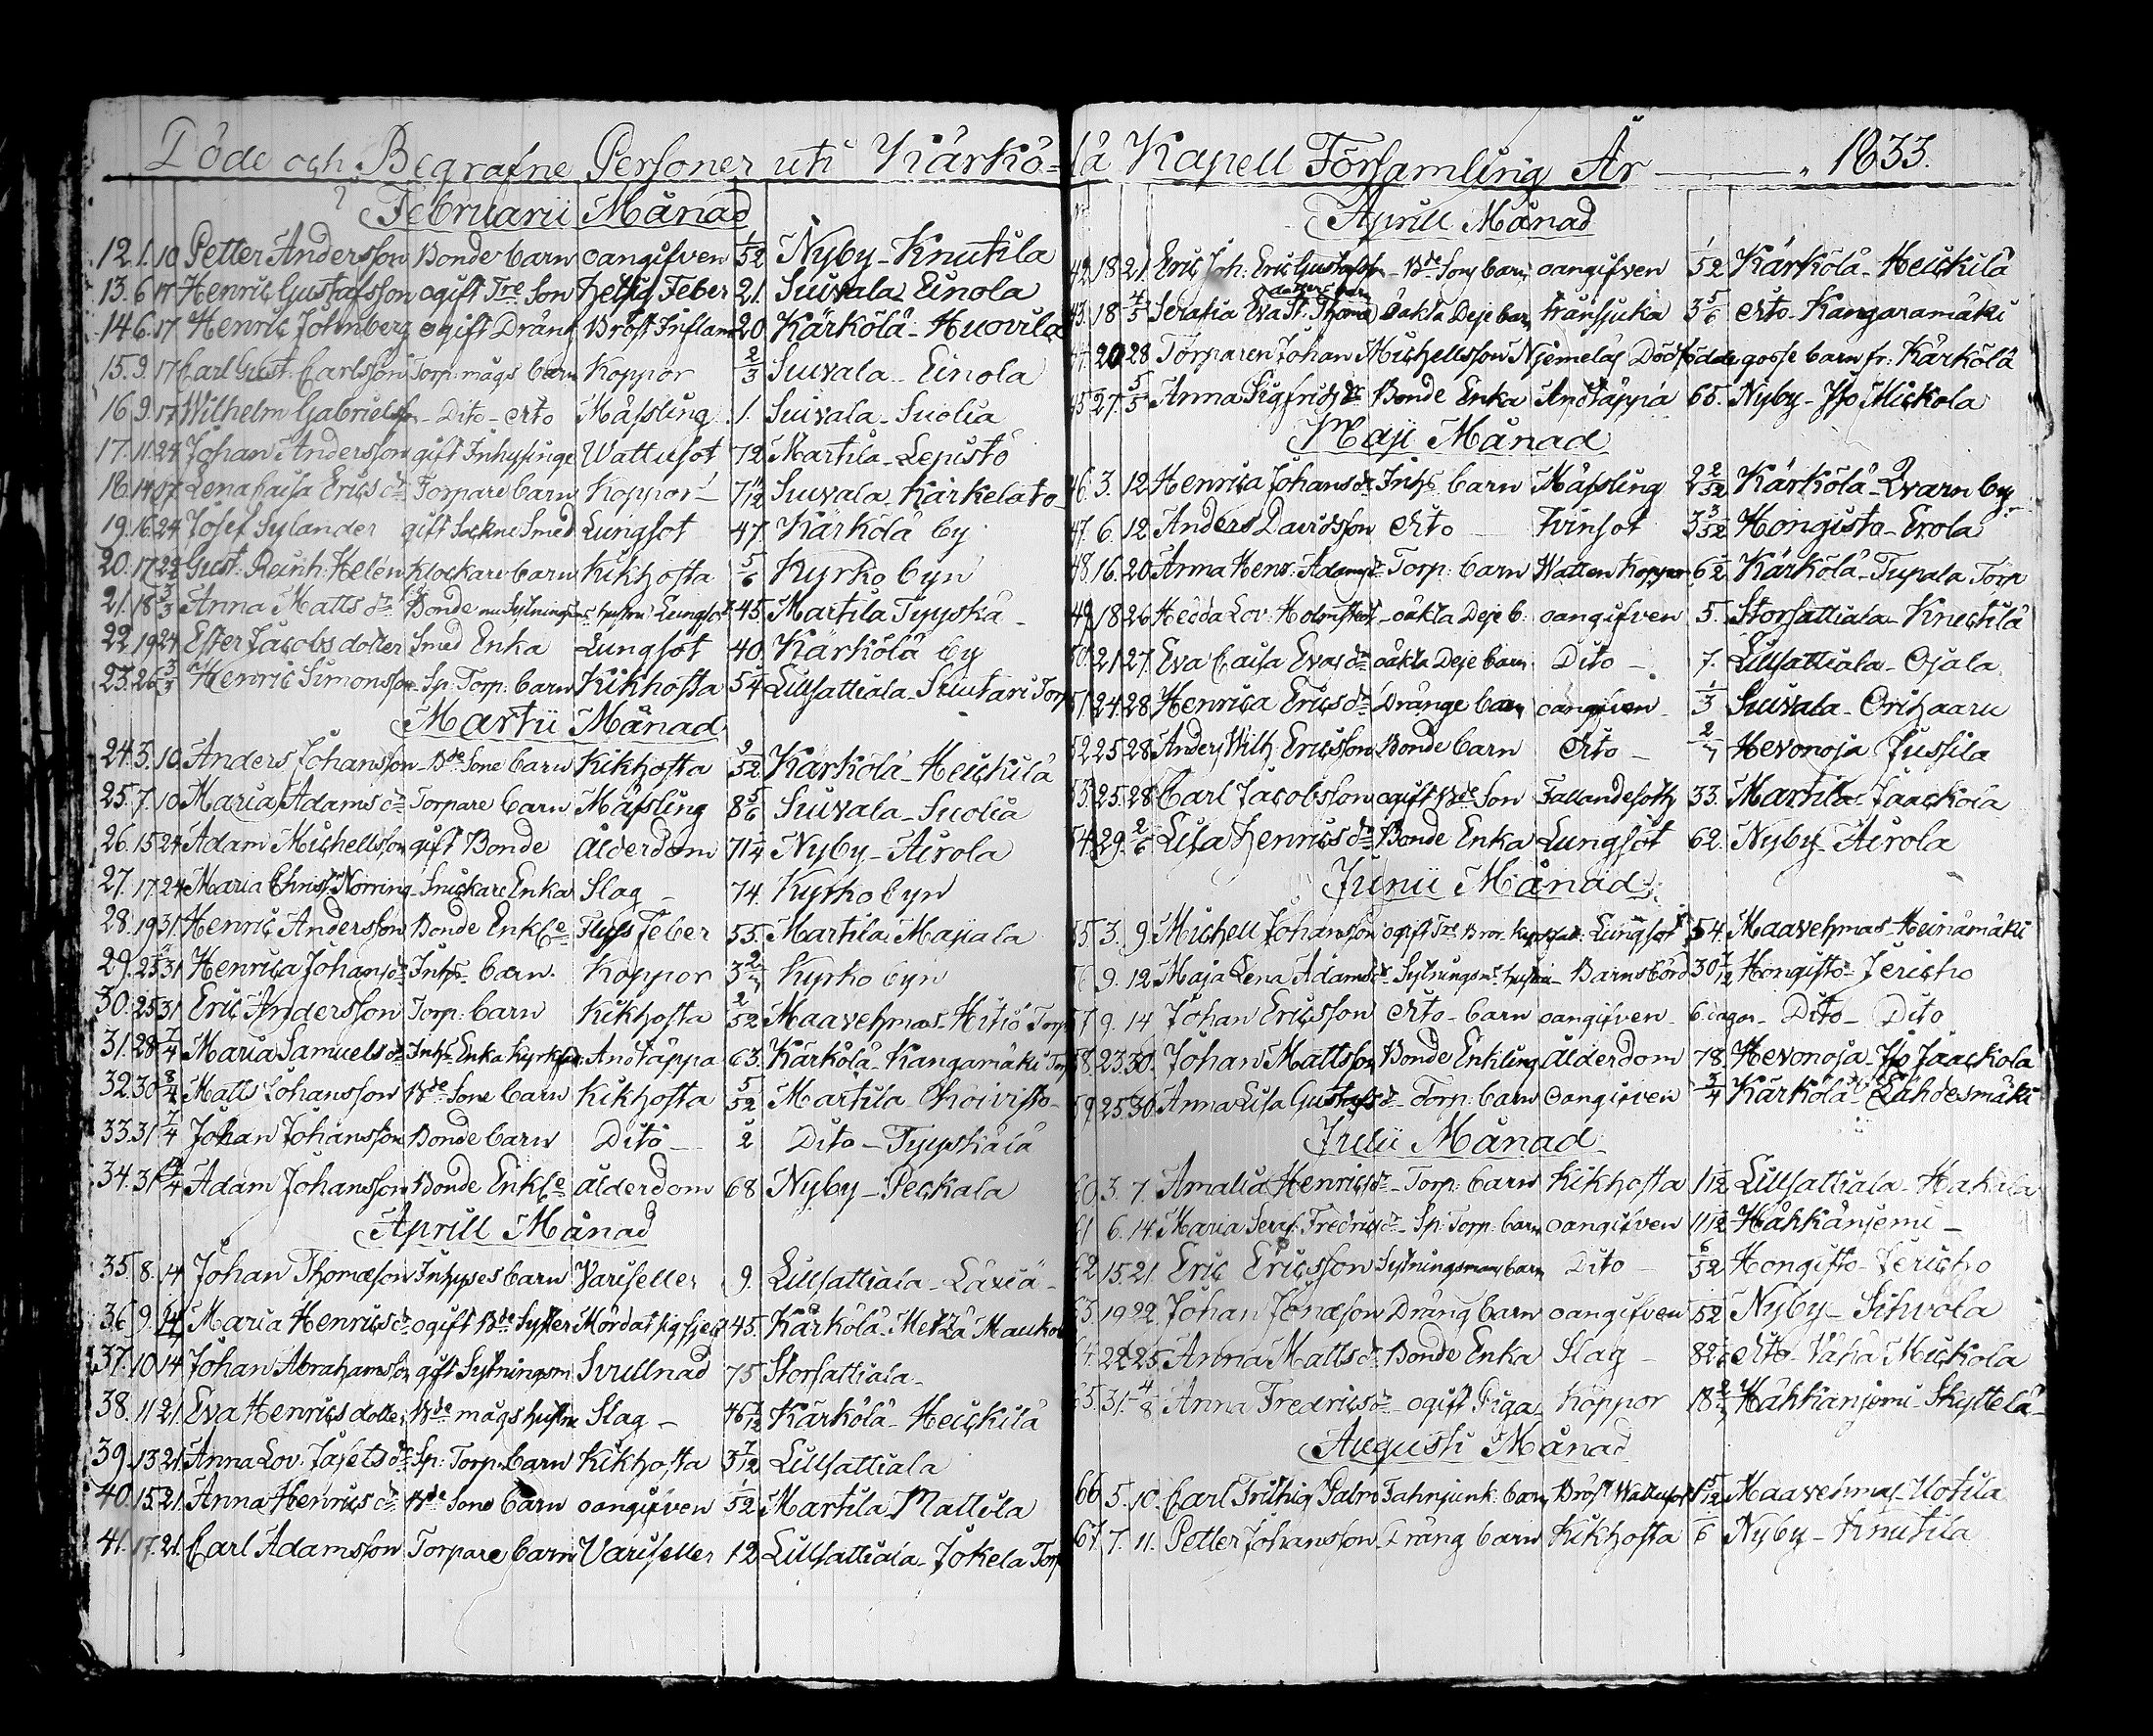 Döde och Begrafne Personer uti Kärkö-
Februarii Månad
12. 1. 10 Petter Andersson Bonde barn oangifven 1/52 Nyby - Knutila
13. 6 17 Henric Gustafsson ogift Tre Son hetsig Feber 21. Suivala Einola
14 6. 17 Henric Johnberg ogift Dräng Bröst Inflam 20 Kärkölä - Huovila
15. 9. 17 Carl Gust: Carlsson Torp: mågs barn Koppor 2/3 Suivala - Einola
16 9. 17 Wilhelm Gabrielss: - Dito - dito Mässling 1. Suivala - Suolia
17. 11. 24 Johan Andersson gift Inhysinge Wattusot 72 Martila - Lepistö
18. 14 17 Lena Caisa Erics dr Torpare barn Koppor - 7 11/12 Suivala Kärkelato -
19. 16. 24 Josef Sylander gift Sockne Smed Lungsot 47. Kärkölä by
20. 17 22 Gust: Reinh: Helén Klockare barn Kikhosta 5/6 Kyrko byn
21. 18 3/3 Anna Matts dr Bonde nu Sytningsms hustru Lungsot 45. Martila Tyyskä -
22 19 24 Ester Jacobs dotter Smed Enka Lungsot 40. Kärkölä by
23. 26 3/3 Henric Simonsson Sp: Torp: barn Kikhosta 5/4 Lillsattiala - Suutari Torp
Martii Månad
24. 3. 10. Anders Johansson - Bde Sone barn Kikhosta 2/52 Kärkölä - Heickilä
25. 7. 10 Maria Adams dr Torpare barn Mässling 8 5/6 Suivala - Suolia
26. 15 24 Adam Michellsson gift Bonde Ålderdom 71 1/4 Nyby - Airola
27. 17 24 Maria Christ: Norring Snickare Enka Slag - 74. Kyrko byn
28. 19 31 Henric Andersson Bonde Enkl. Fluss Feber 55. Martila Majala
29. 25 31 Henrica Johans dr Inhs barn. Koppor 3 Kyrko byn
30. 25 31 Eric Andersson Torp: barn Kikhosta 2/52 Maavehmas - Hitiö Torp
31. 28 7/4 Maria Samuels dr Inhs Enka Andtäppa 63. Kärkölä Kangamäki Torp
32. 30 8/4 Matts Johansson Bde Sone barn Kikhosta 5/52 Martila Choivisto -
33. 31 7/4 Johan Johansson Bonde barn Dito - 2 Dito - Tyyskälä
34. 31 14/4 Adam Johansson Bonde Enkl. Ålderdom 68 Nyby - Peckala
Aprill Månad
35. 8. 14 Johan Thomæson Inhyses barn Variseller 9. Lillsattiala - Laxiä -
36 9. 14 Maria Henrics dr ogift Bde Syster Mördat sig sjelf 45. Kärkölä - Metzä Maukola
37. 10 14 Johan Abrahamsson gift Sytningsm Svullnad 75 Storsattiala -
38. 11 21. Eva Henrics dotter Bde mågs hustru Slag - 46 Kärkölä - Heickilä
39. 13 21. Anna Lov: Josefs dr Sp: Torp: barn Kikhosta 3 7/12 Lillsattiala
40. 15. 21. Anna Henrics dr Bde Sone barn oangifven 1/52 Martila Mattila
41. 17. 21. Carl Adamsson Torpare barn Variseller 12 Lillsattiala - Jokela Torp
lä Kapell Församling År ——— 1833.
Aprill Månad
42 18 21. Eric Joh: Eric Gustafsson - Bde Sons barn oangifven 1/52 Kärkölä - Heickilä
dotters barn
43. 18 4/5 Serafia Eva St. Thoma oäkta Deje barn Kränsjuka 3 5/6 dito - Kangaramäki
44 20 28 Torparen Johan Michellsson Njemeläs Dödfödde gosse barn fr: Kärkölä
45 27. 5/5 Anna Sigfrids dr Bonde Enka Andtäppa 65. Nyby - Iso Mickola
Maji Månad
46. 3. 12 Henrica Johans dr Inhs barn Mässling 2 2/52 Kärkölä - Qvarn by
47. 6. 12. Anders Davidsson dito - Tvinsot 3 3/52 Hongisto - Erola
48. 16. 20 Anna Hens: Adams dr Torp: barn Watten koppor 6 1/2 Kärkölä - Tupala Torp
49. 18 26 Hedda Lov: - oäkta Deje b. oangifven 5. Storsattiala - Knectilä
50. 21 27. Eva Caisa Evas dr oäkta Deje barn Dito - 7. Lillsattiala - Ojala.
51. 24. 28 Henrica Erics dr Dränge barn oangifven 1/3 Suivala - Orihaaru
52 25 28 Anders Wilh Ericsson Bonde barn dito - 2/7 Hevonoja Jussila
53. 25. 28 Carl Jacobsson ogift Bde Son Fallandesoth 33. Martila - Jaackola
54. 29. 2/6 Lisa Henrics dr Bonde Enka Lungsot 62. Nyby Airola
Junii Månad
55. 3. 9. Michell Johansson ogift Tre Bror Lungsot 54. Maavehmas - Heinämäki
56 9. 12 Maja Lena Adams dr Sytningsms hustru - Barnsbörd 30 7/12 Hongisto - Jericho
57 9. 14 Johan Ericsson dito - barn oangifven 6 dagar - Dito - Dito
58. 23 30. Johan Mattsson Bonde Enkling Ålderdom 78. Hevonoja - Iso Jaackola
59. 25. 30. Anna Lisa Gustafs dr - Torp: barn oangifven 3/4 Kärkölä - Lähdesmäki
Julii Månad
60 3. 7. Amalia Henrics dr - Torp: barn Kikhosta 1/12 Lillsattiala - Hakala
61 6. 14. Maria Seraf: Fredrics dr - Sp: Torp: barn oangifven 11/12 Häkkänjemi -
62 15. 21. Eric Ericsson Sytningsmans barn Dito - 6/52 Hongisto - Jericho
63. 19 22. Johan Jonæson Dräng barn oangifven 52 Nyby - Sihvola
64. 22 25. Anna Matts dr Bonde Enka Slag - 82 dito - Vähä Mickola
65. 31. 4/8 Anna Fredrics dr - ogift Piga - Koppor 18 Häkkänjemi - Skyttelä -
Augusti Månad
66 5. 10. Carl Frithig Palm Fahnjunk: barn Bröst Wattusot 5/12 Maavehmas - Uotila
67 7. 11. Petter Johansson - Dräng barn Kikhosta 6 Nyby - Knutila